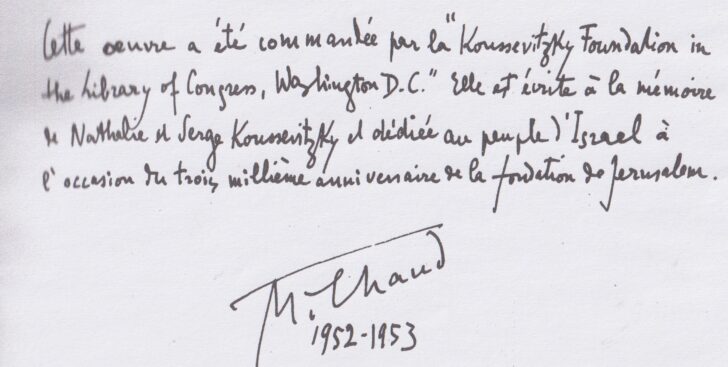 Cette oeuvre a été commandée par la "Koussevitzky Foundation in
the Library of Congress, Washington D.C." Elle est écrite à la mémoire
de Nathalie et Serge Koussevitzky et dédiée au peuple d'Israel à
l'occasion du trois millième anniversaire de la fondation de Jerusalem.
Milhaud
1952-1953